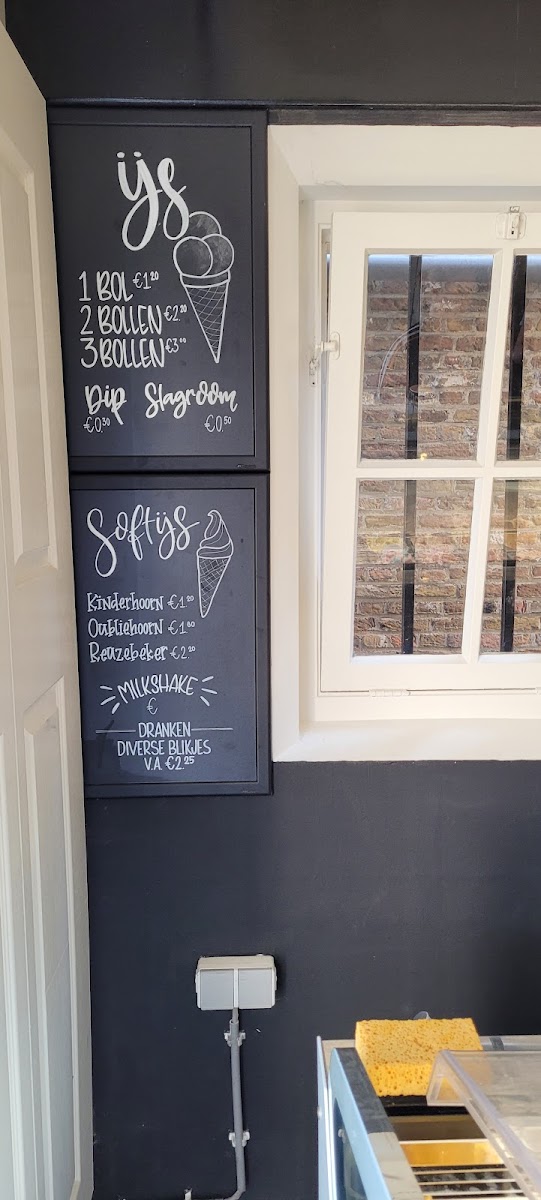 ijs
1 BOL €1.20
2 BOLLEN €2.20
3 BOLLEN €3.00
Dip Slagroom
€0.30 €0.50
Softijs
Kinderhoorn €1.20
Oubliehoorn
Reuzebeker €2.20
MILKSHAKE
€
DRANKEN
DIVERSE BLIKJES
V.A. €2.25